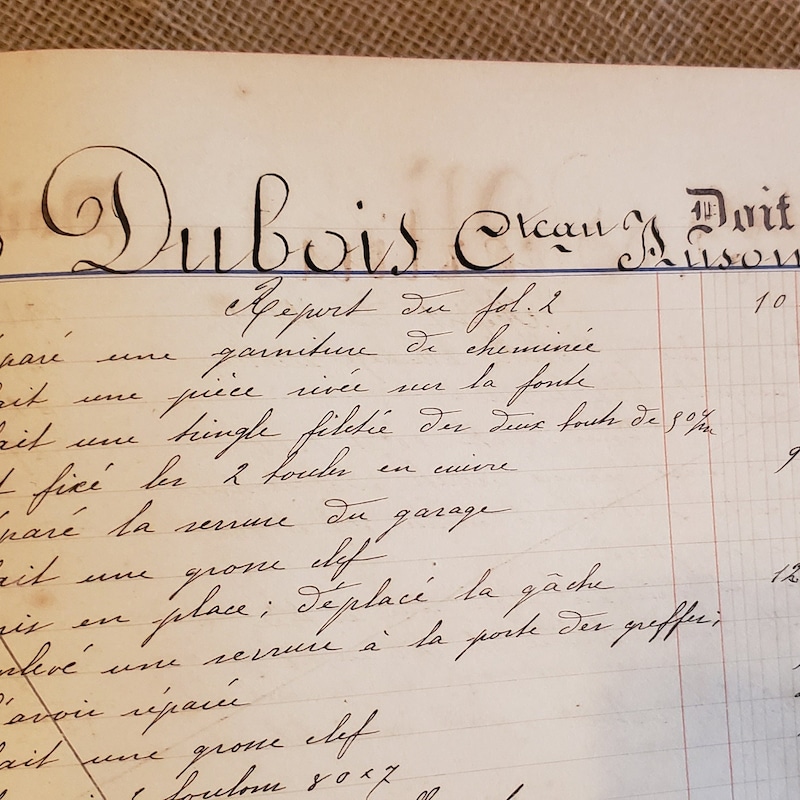 Dubois Doit
Report du fol. 2 10
paré une garniture de cheminée
ait une pièce rivée sur la fonte
ait une tringle filetée des deux bouts de
t fixé les 2 boules en cuivre 9
paré la serrure du garage
ait une grosse clef
mis en place; déplacé la gâche 12
nlevé une serrure à la porte des greffes;
l'avoir réparée
ait une grosse clef
boulons 80x7